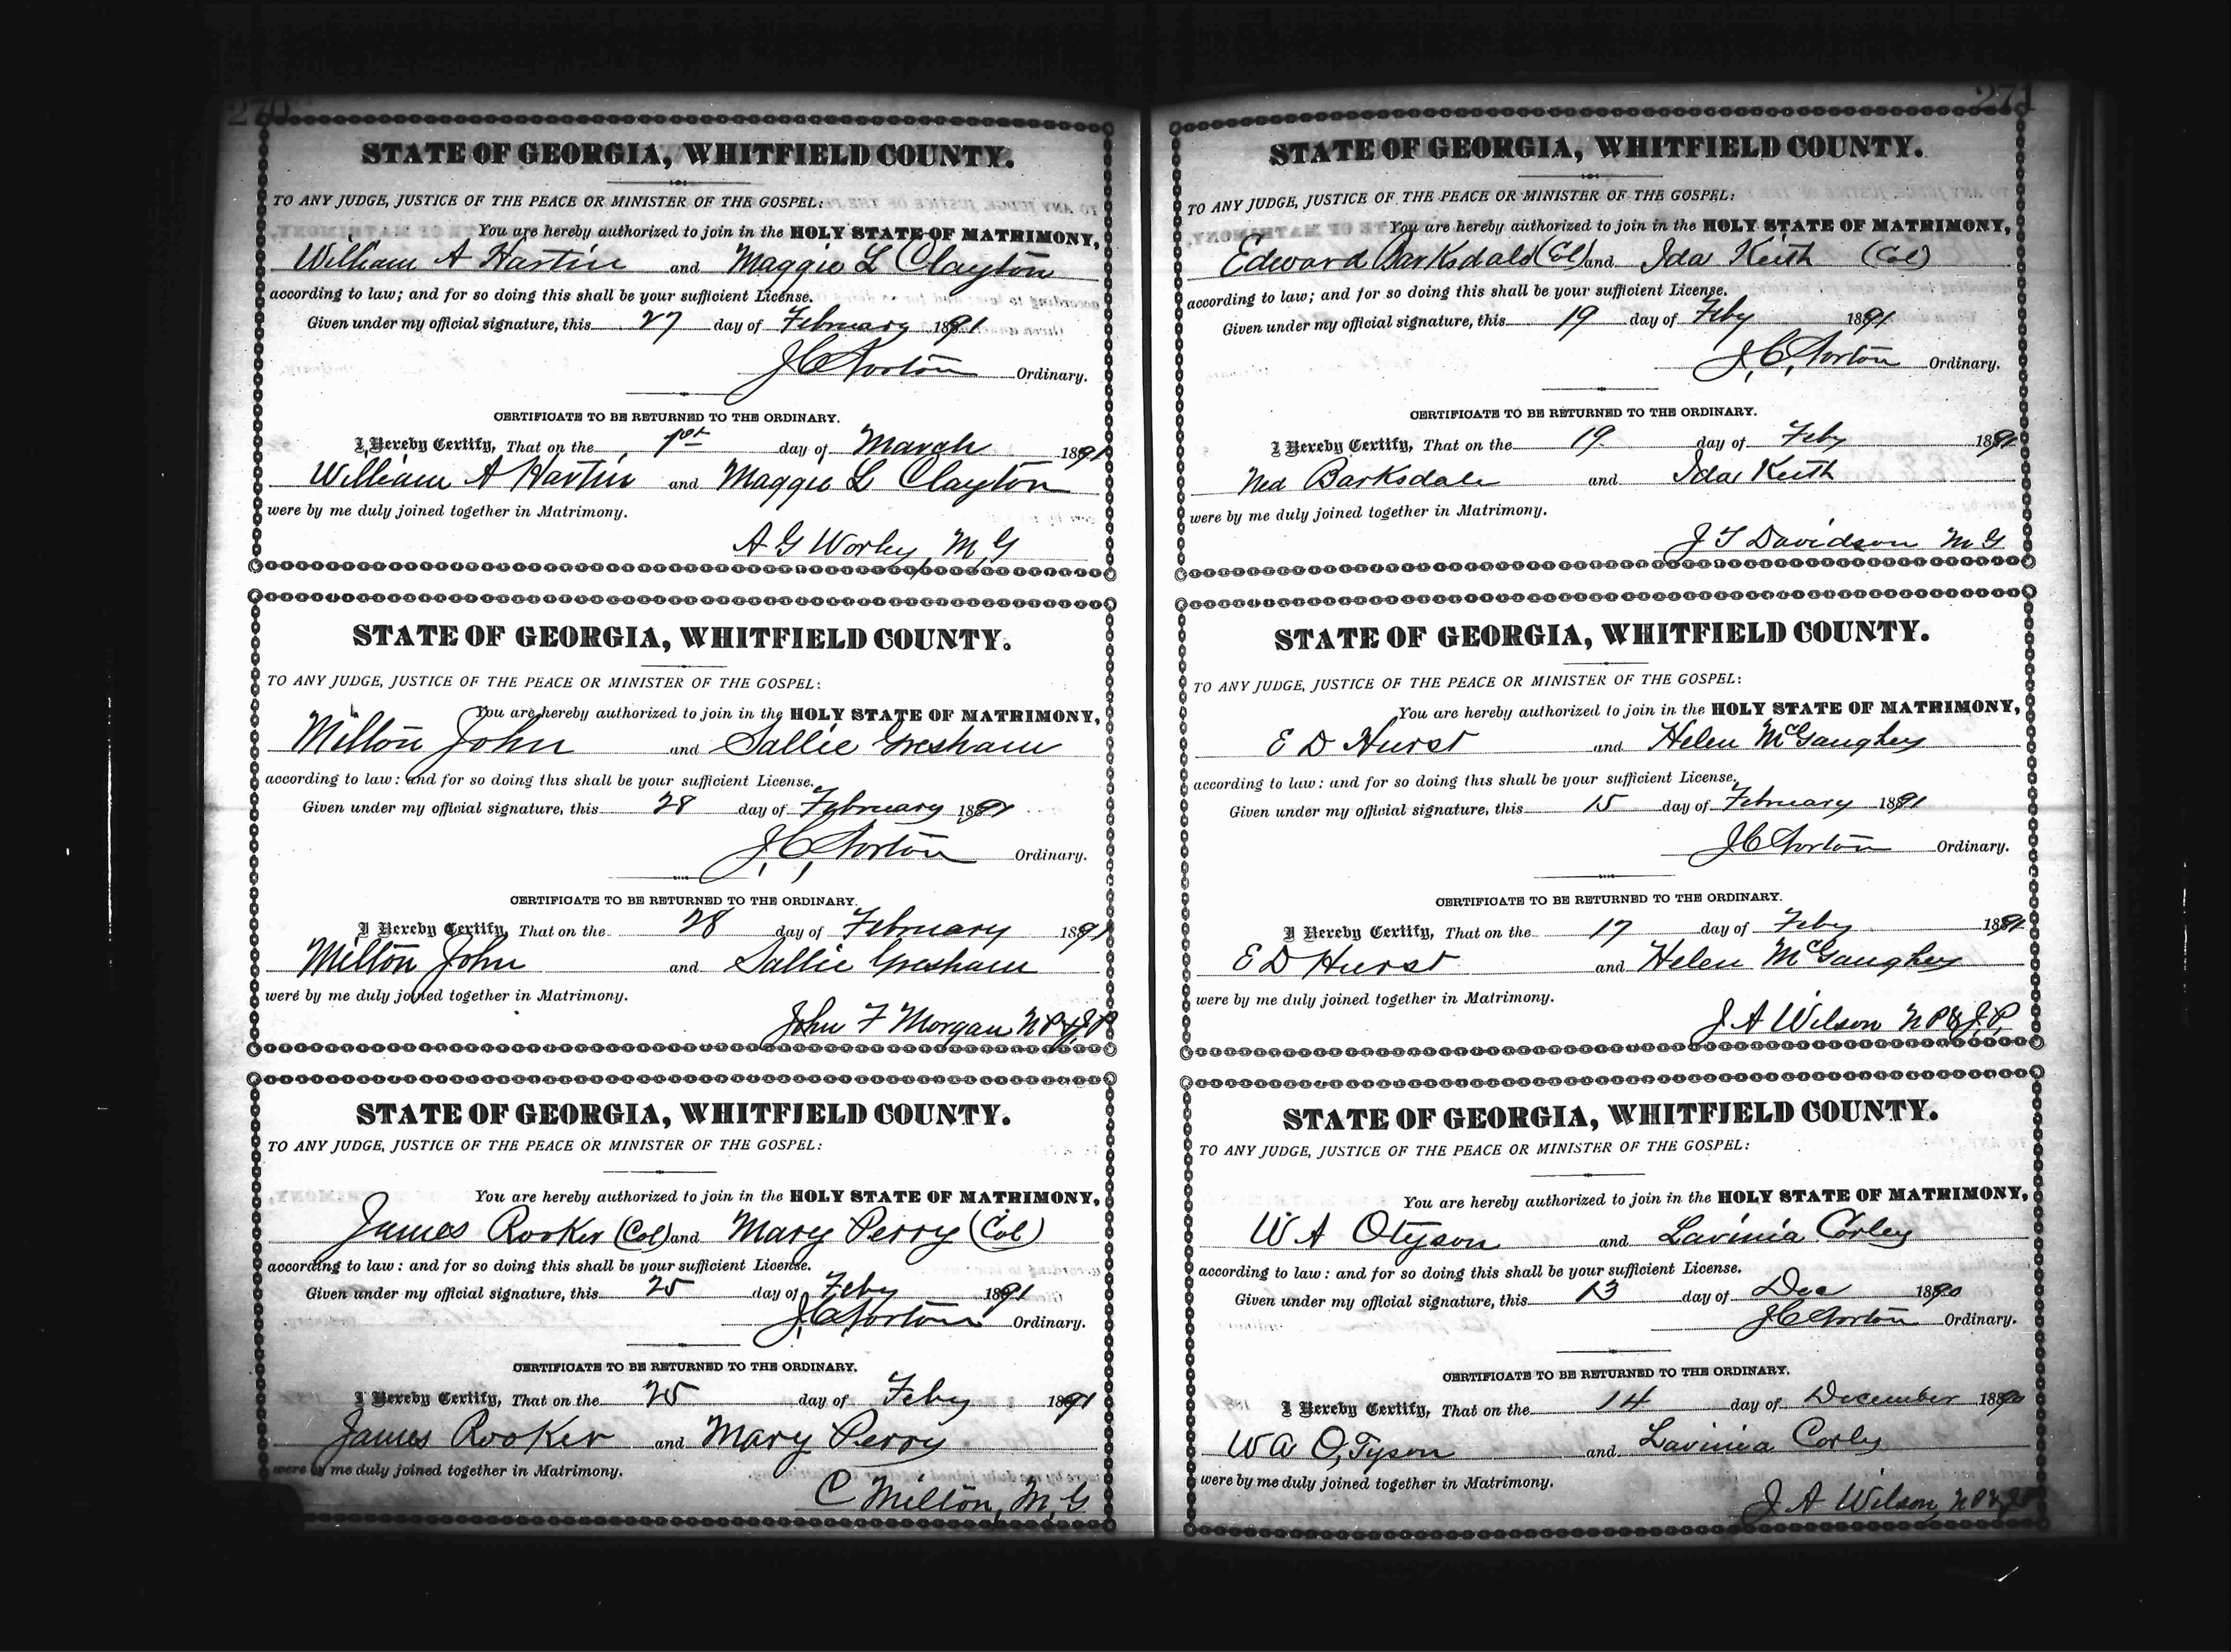 270
STATE OF GEORGIA, WHITFIELD COUNTY.
TO ANY JUDGE, JUSTICE OF THE PEACE OR MINISTER OF THE GOSPEL:
You are hereby authorized to join in the HOLY STATE OF MATRIMONY,
William A Hartin and Maggie L Clayton
according to law; and for so doing this shall be your sufficient License.
Given under my official signature, this 27 day of February 1891
J C Norton Ordinary.
CERTIFICATE TO BE RETURNED TO THE ORDINARY.
I Hereby Certify, That on the 1st day of March 1891
William A Hartin and Maggie L Clayton
were by me duly joined together in Matrimony.
A G Worley, M, G
STATE OF GEORGIA, WHITFIELD COUNTY.
TO ANY JUDGE, JUSTICE OF THE PEACE OR MINISTER OF THE GOSPEL:
You are hereby authorized to join in the HOLY STATE OF MATRIMONY,
Milton John and Sallie Gresham
according to law: and for so doing this shall be your sufficient License.
Given under my official signature, this 28 day of February 1891
J, C, Norton Ordinary.
CERTIFICATE TO BE RETURNED TO THE ORDINARY.
I Hereby Certify, That on the 28 day of February 1891
Milton John and Sallie Gresham
were by me duly joined together in Matrimony.
John F Morgan N P & J, P
STATE OF GEORGIA, WHITFIELD COUNTY.
TO ANY JUDGE, JUSTICE OF THE PEACE OR MINISTER OF THE GOSPEL:
You are hereby authorized to join in the HOLY STATE OF MATRIMONY,
James Rooker (Col) and Mary Perry (Col)
according to law: and for so doing this shall be your sufficient License.
Given under my official signature, this 25 day of Feby 1891
J, C Norton Ordinary.
CERTIFICATE TO BE RETURNED TO THE ORDINARY.
I Hereby Certify, That on the 25 day of Feby 1891
James Rooker and Mary Perry
were by me duly joined together in Matrimony.
C Milton, M, G
271
STATE OF GEORGIA, WHITFIELD COUNTY.
TO ANY JUDGE, JUSTICE OF THE PEACE OR MINISTER OF THE GOSPEL:
You are hereby authorized to join in the HOLY STATE OF MATRIMONY,
Edward Barksdale (Col) and Ida Keith (Col)
according to law; and for so doing this shall be your sufficient License.
Given under my official signature, this 19 day of Feby 1891
J, C, Norton Ordinary.
CERTIFICATE TO BE RETURNED TO THE ORDINARY.
I Hereby Certify, That on the 19 day of Feby 1891
Ned Barksdale and Ida Keith
were by me duly joined together in Matrimony.
J T Davidson M G
STATE OF GEORGIA, WHITFIELD COUNTY.
TO ANY JUDGE, JUSTICE OF THE PEACE OR MINISTER OF THE GOSPEL:
You are hereby authorized to join in the HOLY STATE OF MATRIMONY,
E D Hurst and Helen McGaughey
according to law: and for so doing this shall be your sufficient License.
Given under my official signature, this 15 day of February 1891
J C Norton Ordinary.
CERTIFICATE TO BE RETURNED TO THE ORDINARY.
I Hereby Certify, That on the 17 day of Feby 1891
E D Hurst and Helen McGaughey
were by me duly joined together in Matrimony.
J A Wilson N P & J, P,
STATE OF GEORGIA, WHITFIELD COUNTY.
TO ANY JUDGE, JUSTICE OF THE PEACE OR MINISTER OF THE GOSPEL:
You are hereby authorized to join in the HOLY STATE OF MATRIMONY,
W A Otyson and Lavinia Corley
according to law: and for so doing this shall be your sufficient License.
Given under my official signature, this 13 day of Dec 1890
J C Norton Ordinary.
CERTIFICATE TO BE RETURNED TO THE ORDINARY.
I Hereby Certify, That on the 14 day of December 1890
W A O,Tyson and Lavinia Corley
were by me duly joined together in Matrimony.
J A Wilson, N P & J P